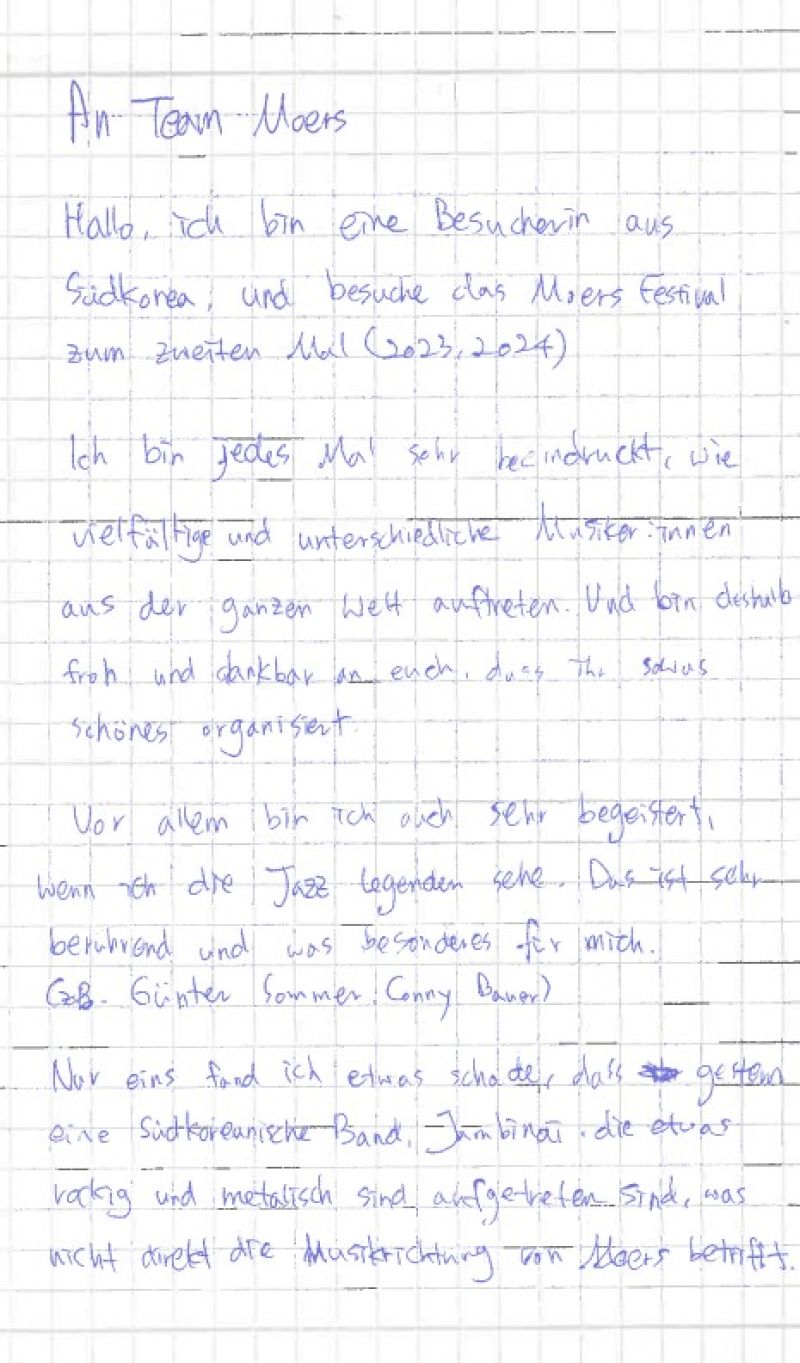 An Team Moers
Hallo, ich bin eine Besucherin aus
Südkorea, und besuche das Moers Festival
zum zweiten Mal (2023, 2024)
Ich bin jedes Mal sehr beeindruckt, wie
vielfältige und unterschiedliche Musiker:innen
aus der ganzen Welt auftreten. Und bin deshalb
froh und dankbar an euch, dass Ihr sowas
schönes organisert.
Vor allem bin ich auch sehr begeistert,
wenn ich die Jazz Legenden sehe. Das ist sehr
beruhrend und was besonderes für mich.
(zB. Günter Sommer, Conny Bauer)
Nur eins fand ich etwas schade, dass gestern
eine Südkoreanische Band, Jambinai, die etwas
rockig und metalisch sind aufgetreten sind, was
nicht direkt die Musikrichtung von Moers betrifft.